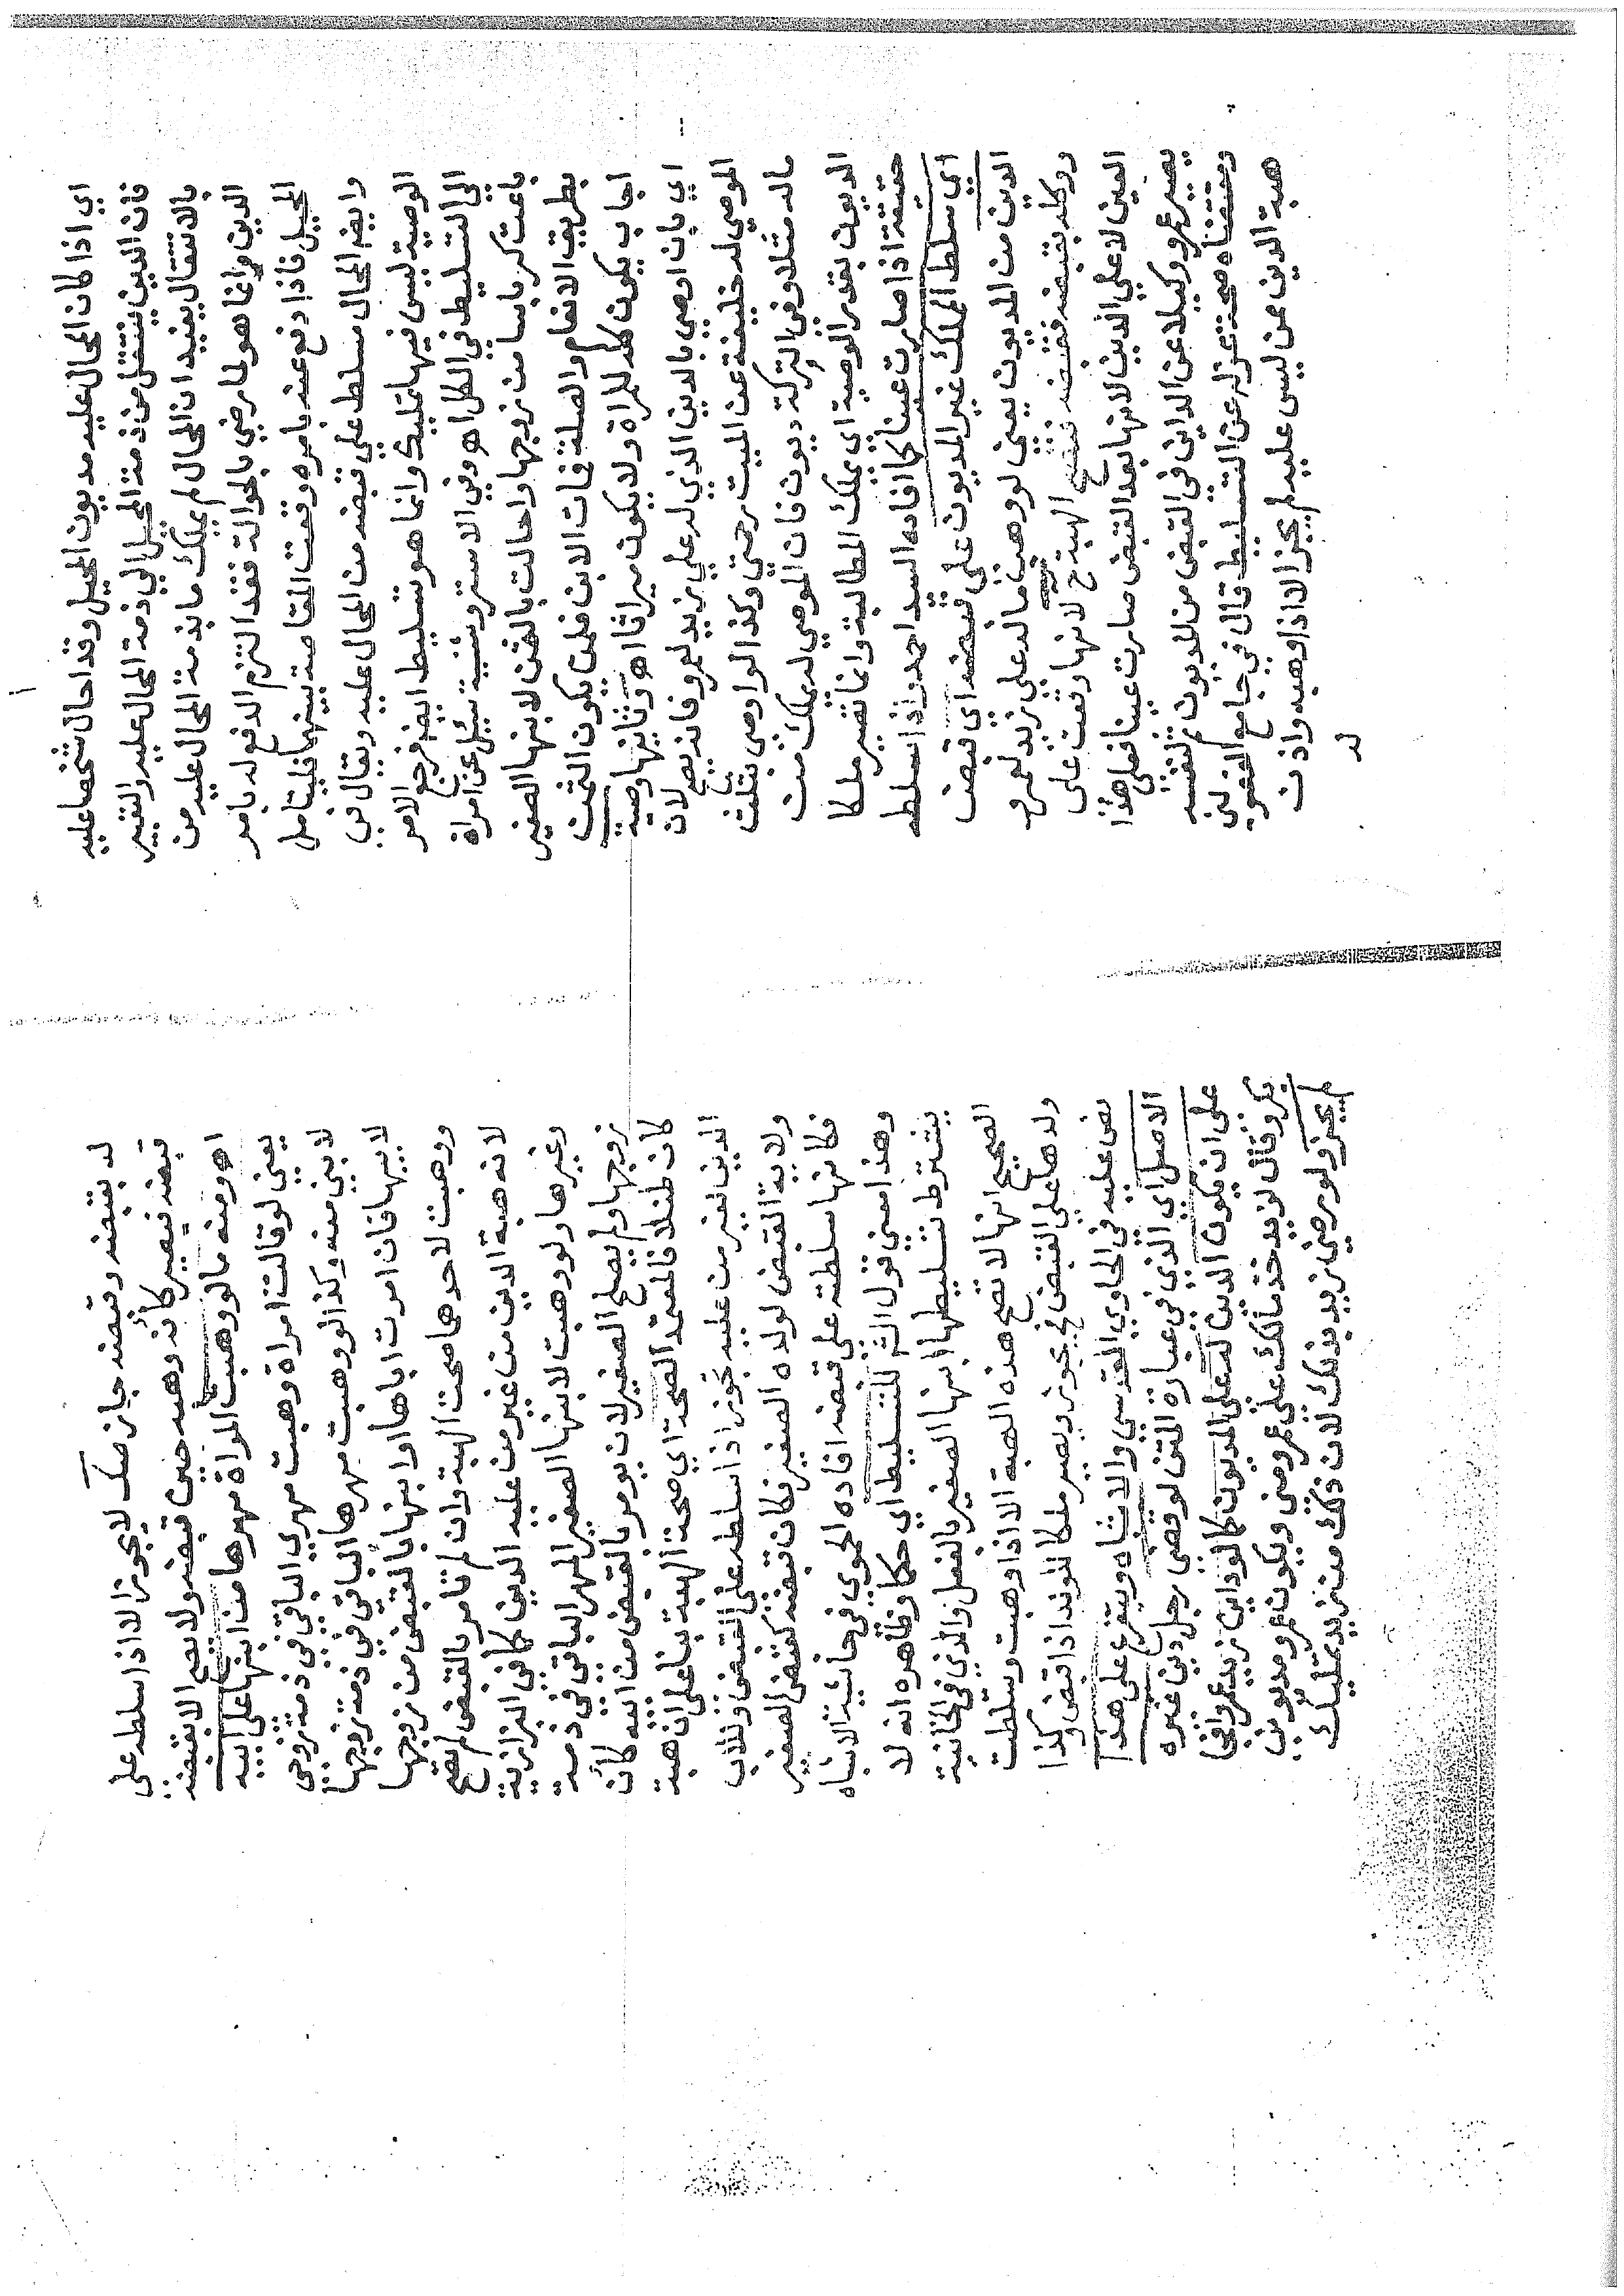 اي اذا كان المحال عليه مديون المحيل وقد احال شخصا عليه
فان الدين ينتقل من ذمة المحيل الي ذمة المحال عليه والتقيير
بالانتقال يفيد ان المحال لم يملك ما بذمة المحال عليه من
الدين وانما هو لما رضي بالحوالة فقد التزم الدفع له بامر
المحيل فاذا دفع عنه بامره وقعت المقاصة بينهما فليتامل
وايضا المحال مسلط علي قبضه من المحال عليه ويقال في
الوصية ليس فيها تمليك وانما هو تسليط ايضا فرجع الامر
الي التسليط في الكل اهـ وفي الاستروشنية سئل عن امراة
باعت كرباسا من زوجها واحالت بالثمن لابنها الصغير
بطريق الانعام والصلة فمات الابن فلمن يكون الثمن
اجاب يكون كله للمراة ولا يكون ميراثا اهـ وثانيها وصية
اي بان اوصي بالدين الذي له علي زيد لعمرو فانه يصح لان
الموصي له خليفة عن الميت رحمتي وكذا لو اوصي بثلث
ماله مثلا وفي التركة ديون فان الموصي له يملك من
الديون بقدر الوصية اي يملك المطالبة وانما تصير ملكا
حقيقة اذا صارت عينا كما افاده السيد احمد واذا سلطه
اي سلط المملك غير المديون علي قبضه اي قبض
الدين من المديون يعني لو وهب ما له علي زيد لعمرو
ووكله بقبضه فقبضه فتصح الهبة ح لانها وقعت علي
العين لا علي الدين لانها بعد القبض صارت عينا فعلي هذا
يصير عمرو وكيلا عن الداين في القبض من المديون ثم لنفسه
ومقتضاه صحة عزله عن التسليط قال في جامع الفصولين
هبة الدين ممن ليس عليه لم يجز الا اذا وهبه واذن
له
له بقبضه وقبضه جاز صك لا يجوز الا اذا سلطه علي
قبضه فيصير كأنه وهبه حين قبضه ولا يصح الا بقبضه
اهـ ومنه ما لو وهبت المراة مهرها من ابنها علي ابيه
يعني لو قالت امراة وهبت مهري الباقي في ذمة زوجي
لابني منه وكذا لو وهبت مهرها الباقي في ذمة زوجها
لابيها فان امرت اباها او ابنها بالقبض من زوجها
ووهبت لاحدهما صحت الهبة وان لم تامر بالقبض لم تصح
لانه هبة الدين من غير من عليه الدين كما في البزازية
وغيرها ولو وهبت لابنها الصغير المهر الباقي في ذمة
زوجها ولم يصلح الصغير لان يومر بالقبض من ابيه كأن
كان طفلا فالمعتمد الصحة اي صحة الهبة بناء علي ان هبة
الدين لغير من عليه تجوز اذا سلطه علي القبض وللاب
ولاية القبض لولده الصغير فكان قبضه كقبض الصغير
فكانها سلطته علي قبضه افاده الحموي في حاشية الاشباه
وهذا معني قول الش للتسليط اي حكما وظاهره انه لا
يشترط تسليطها ابنها الصغير بالفعل والذي في الخانية
الصحيح انها لا تصح هذه الهبة الا اذا وهبت وسلطت
ولدها علي القبض فيجوز ويصير ملكا للولد اذا قبض وكذا
نص عليه في الحاوي القدسي والاشباه ويتفرع علي هذا
الاصل اي الذي في عبارة المتن لو قضي رجل دين غيره
علي ان يكون الدين له علي المديون كما لو داين زيد عمروا فجا
بكر وقال لزيد خذ مالك علي عمرو مني ويكون عمرو مديوني
لم يجز ولو رضي زيد بذلك لان ذلك من زيد تمليك